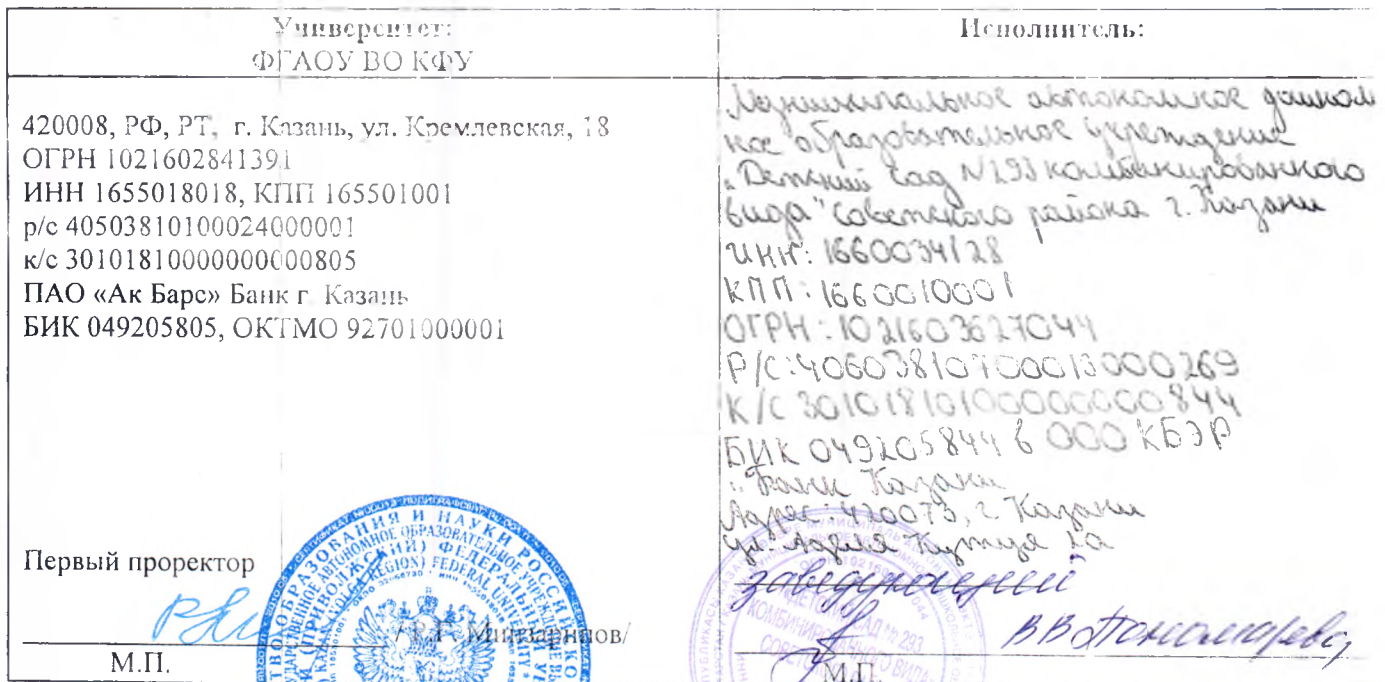 Университет:
ФГАОУ ВО КФУ
420008, РФ, РТ, г. Казань, ул. Кремлевская, 18
ОГРН 1021602841391
ИНН 1655018018, КПП 165501001
р/с 40503810100024000001
к/с 30101810000000000805
ПАО «Ак Барс» Банк г. Казань
БИК 049205805, ОКТМО 92701000001
Первый проректор
/ Р.Г. Минзарипов/
М.П.
Исполнитель:
Муниципальное автономное дошколь
ное образовательное учреждение
"Детский сад №293 комбинированного
вида" Советского района г. Казани
ИНН: 1660034128
КПП: 166001001
ОГРН: 1021603627044
Р/С: 40603810700013000269
К/С 30101810100000000844
БИК 049205844 в ООО КБЭР
"Банк Казани
Адрес: 420073, г. Казани
ул. Аделя Кутуя 2а
заведующий
В В Пономарева
М.П.
ДЕТСКИЙ САД № 293
КОМБИНИРОВАННОГО ВИДА